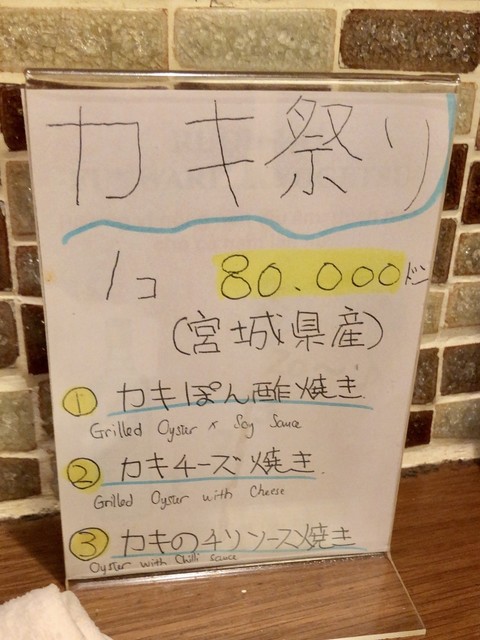 カキ祭り
1コ 80.000ドン
(宮城県産)
① カキぽん酢焼き
Grilled Oyster x Soy Sauce
② カキチーズ焼き
Grilled Oyster with Cheese
③ カキのチリソース焼き
Oyster with Chilli sauce